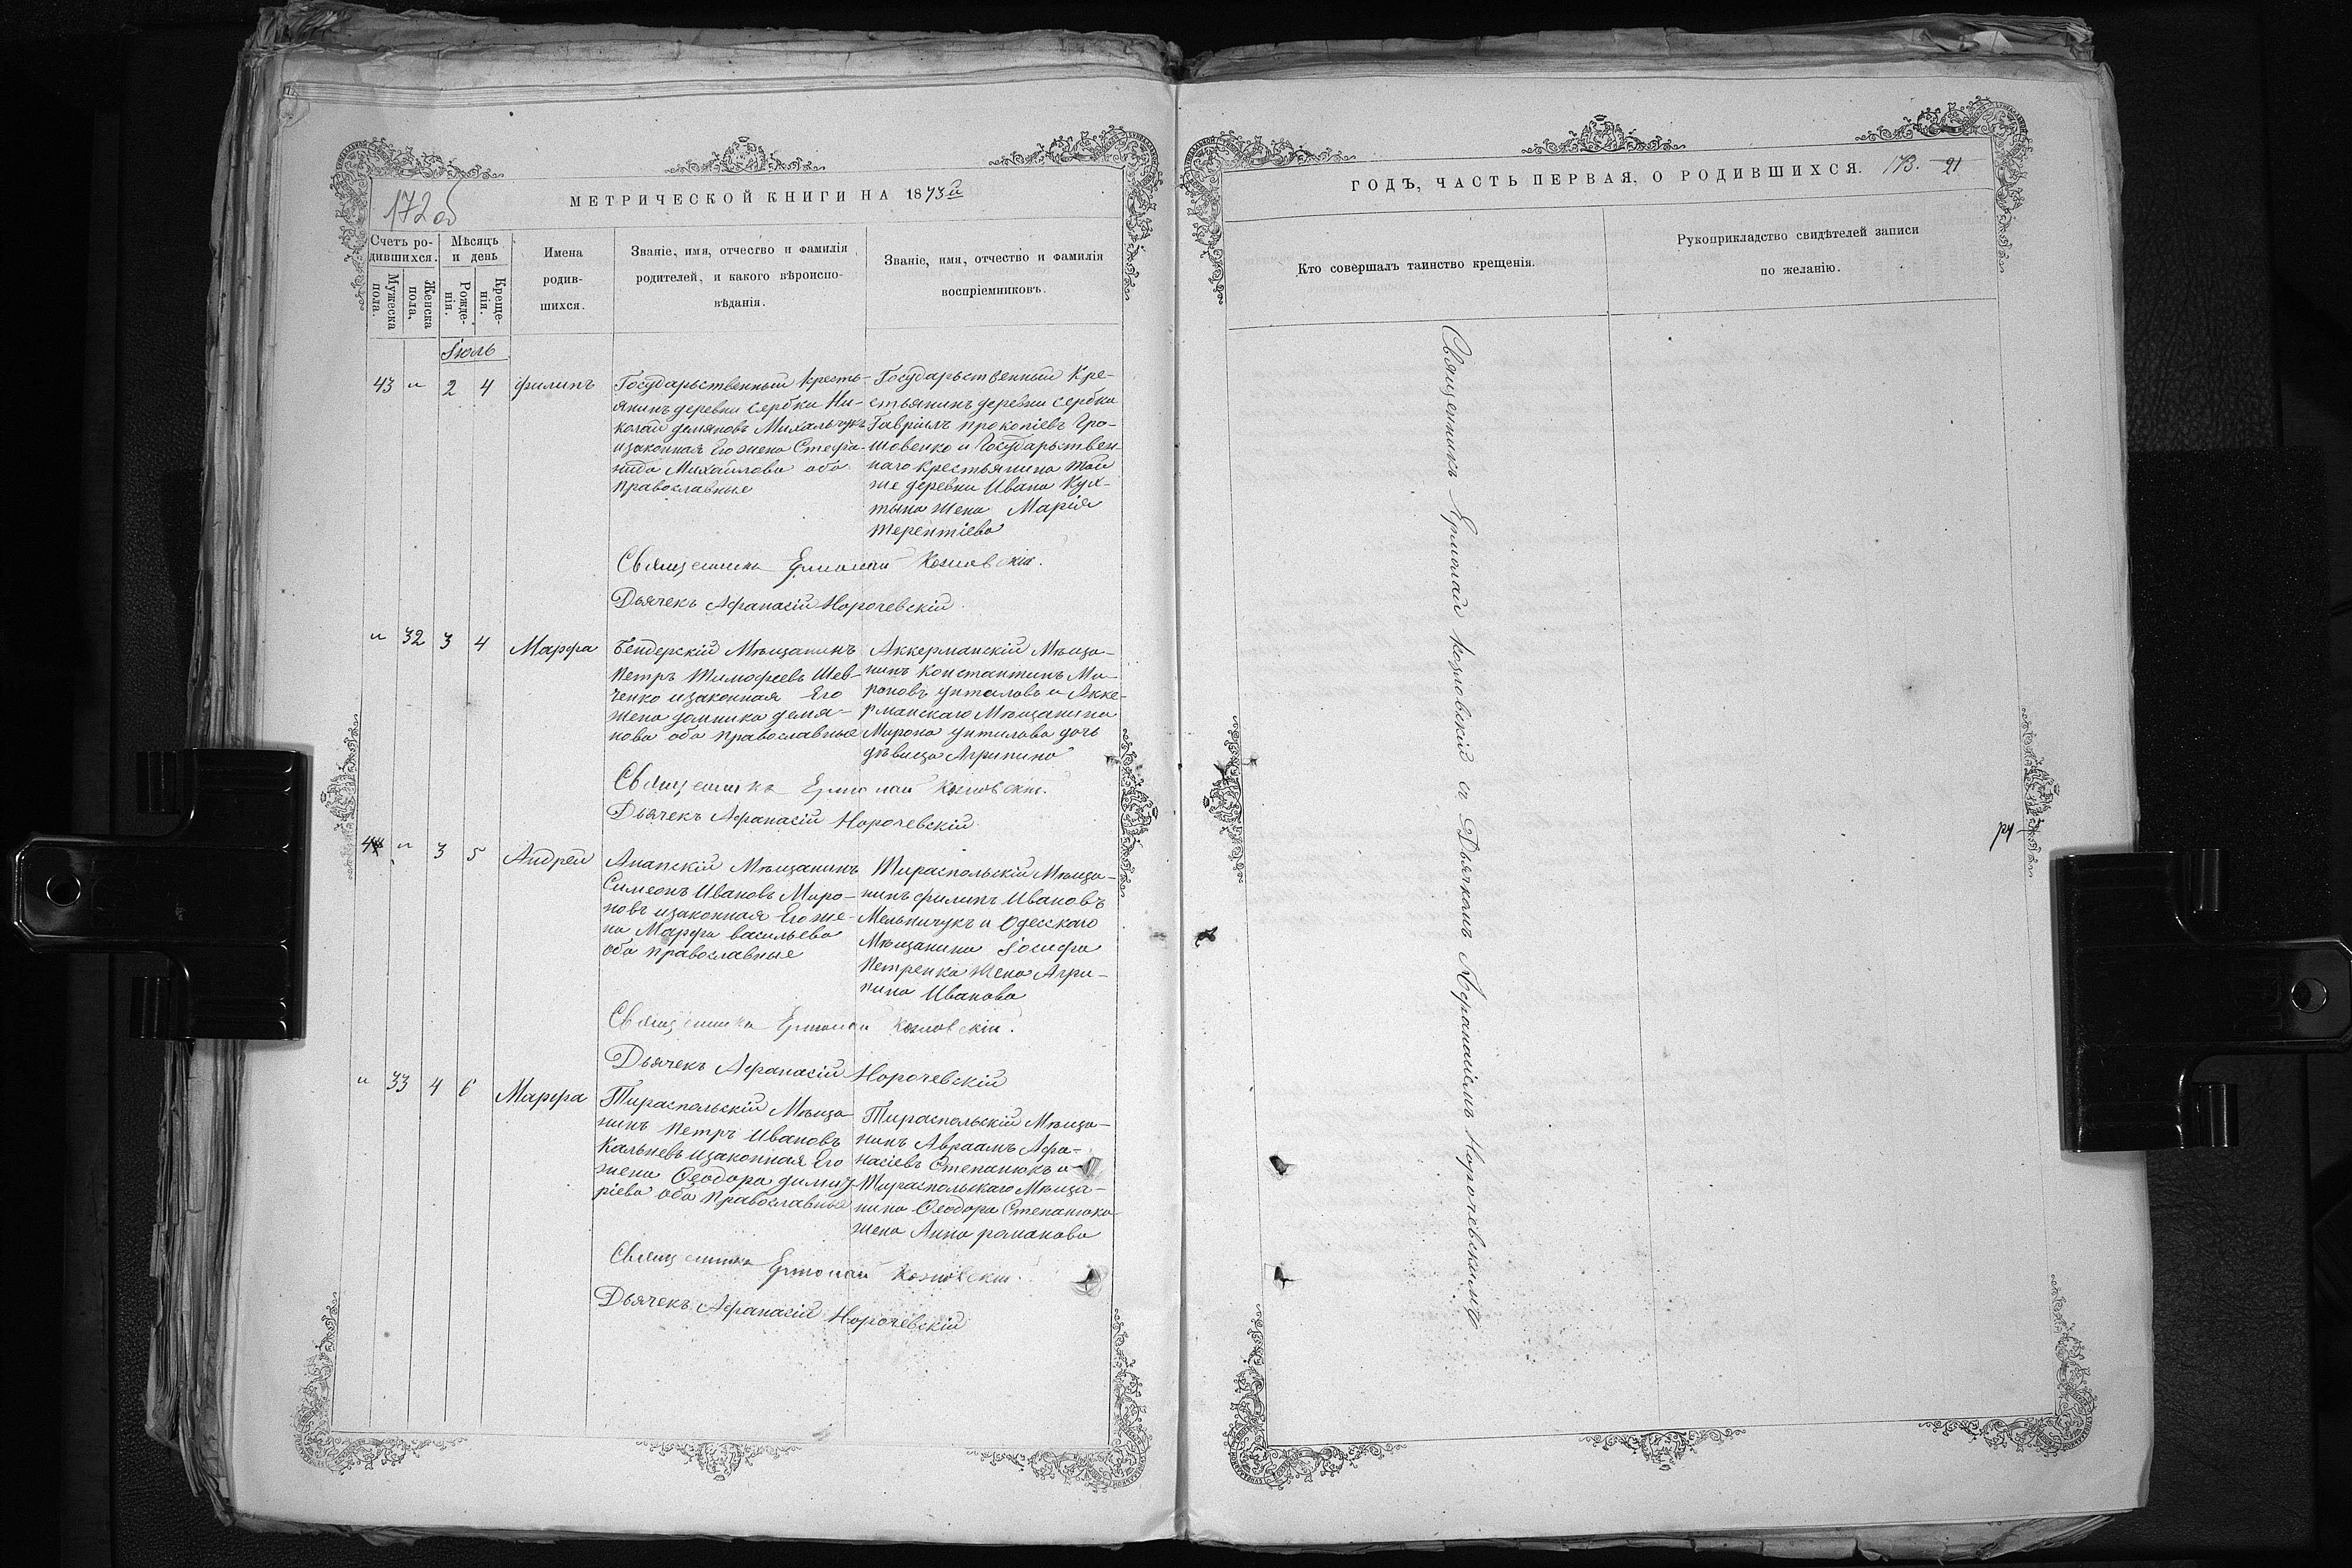 172 об
МЕТРИЧЕСКОЙ КНИГИ НА 1873й
Счетъ ро-
дившихся.
Мужеска
пола.
Женска
пола,
Мѣсяцъ
и день
Рожде-
нія.
Креще-
нія.
Имена
родив-
шихся.
Званіе, имя, отчество и фамилія
родителей, и какого вѣроиспо-
вѣданія.
Званіе, имя, отчество и фамилія
воспріемниковъ.
Іюль
43 " 2 4 Филипъ
Государьственный кресть-
янинъ деревни Сербки Ни-
колай демяновъ Михальчукъ
изаконная Его жена Стефа-
нида Михайлова оба
православные
Государьственный Кре-
стьянинъ деревни Сербки
Гавріилъ прокопіевъ Гро-
шовенко и Государьствен-
наго крестьянина той
же деревни Ивана Кух-
тына жена Марія
терентіева
Священникъ Ермолай Козловскій.
Дьячекъ Афанасій Норочевскій
" 32 3 4 Марфа
Бендерскій Мѣщанинъ
Петръ Тимофеевъ Шев-
ченко изаконная Его
жена домника демя-
нова оба православные
Аккерманскій Мѣща-
нинъ Константинъ Ми-
роновъ унтиловъ и Акке-
рманскаго Мѣщанина
Мирона унтилова дочь
дѣвица Агрипина
Священникъ Ермолай Козловскій.
Дьячекъ Афанасій Норочевскій
44 " 3 5 Андрей
Анапскій Мѣщанинъ
Симеонъ Ивановъ Миро-
новъ изаконная Его же-
на Марфа васильева
оба православные
Тираспольскій Мѣща-
нинъ филипъ Ивановъ
Мельничукъ и Одесскаго
Мѣщанина Іосифа
Петренка жена Агри-
пина Иванова
Священникъ Ермолай Козловскій.
Дьячекъ Афанасій Норочевскій
" 33 4 6 Марфа
Тираспольскій Мѣща
нинъ Петръ Ивановъ
Кальневъ изаконная Его
жена Феодора димид
ріева оба православные
Тираспольскій Мѣща-
нинъ Авраамъ Афа-
насіевъ Степанюкъ и
Тираспольскаго Мѣща-
нина Феодора Степанюка
жена Анна романова
Священникъ Ермолай Козловскій.
Дьячекъ Афанасій Норочевскій
ГОДЪ, ЧАСТЬ ПЕРВАЯ, О РОДИВШИХСЯ. 173. 21
Кто совершалъ таинство крещенія.
Рукоприкладство свидѣтелей записи
по желанію.
Священникъ Ермолай Козловскій съ Дьячкомъ Афанасіемъ Норочевскимъ